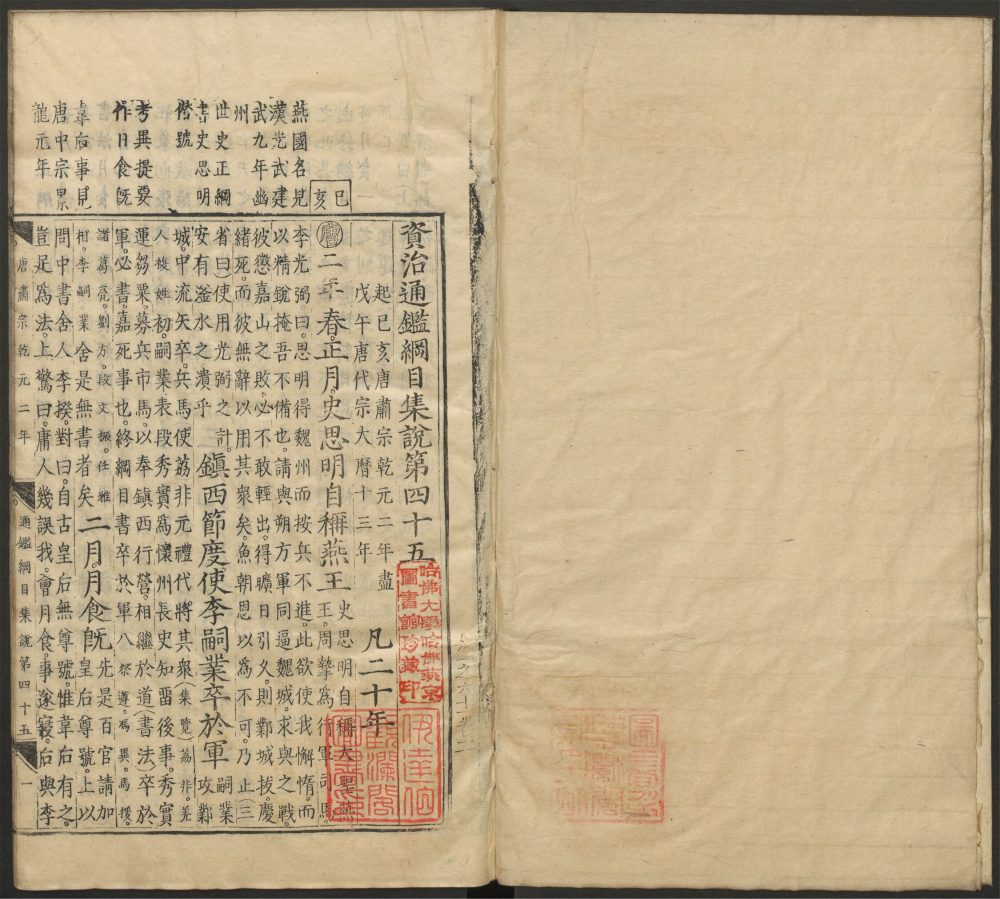 資治通鑑綱目集說第四十五
起己亥唐肅宗乾元二年盡
戊午唐代宗大曆十三年 凡二十年
己亥
唐二年春正月史思明自稱燕王史思明自稱大聖燕
王周摯爲行軍司馬
李光弼曰思明得魏州而按兵不進此欲使我懈惰而
以精銳掩吾不備也請與朔方軍同逼魏城求與之戰
彼懲嘉山之敗必不敢輕出得曠日引久則鄴城拔慶
緒死而彼無辭以用其衆矣魚朝恩以為不可乃止三
省曰使用光弼之計
安有滏水之潰乎
鎮西節度使李嗣業卒於軍嗣業
攻鄴
城中流矢卒兵馬使荔非元禮代將其衆(集覽荔非羌
人複姓初嗣業表段秀實爲懷州長史知留後事秀實
運芻粟募兵市馬以奉鎮西行營相繼於道(書法卒於
軍必書嘉死事也終綱目書卒於軍八祭遵馮異馬援
諸葛亮劉方段文振任雅
相李嗣業舍是無書者矣
二月月食旣先是百官請加
皇后尊號上以
問中書舍人李揆對曰自古皇后無尊號惟韋后有之
豈足爲法上驚曰庸人幾誤我會月食事遂寢后與李
燕國名見
漢光武建
武九年幽
州
世史正綱
書史思明
僭號
考異提要
作日食旣
韋后事見
唐中宗景
龍元年
唐肅宗乾元二年
通鑑綱目集說第四十五
一
哈佛大學哈佛燕京
圖書館珍藏印
伊達伯
觀瀾閣
圖書印